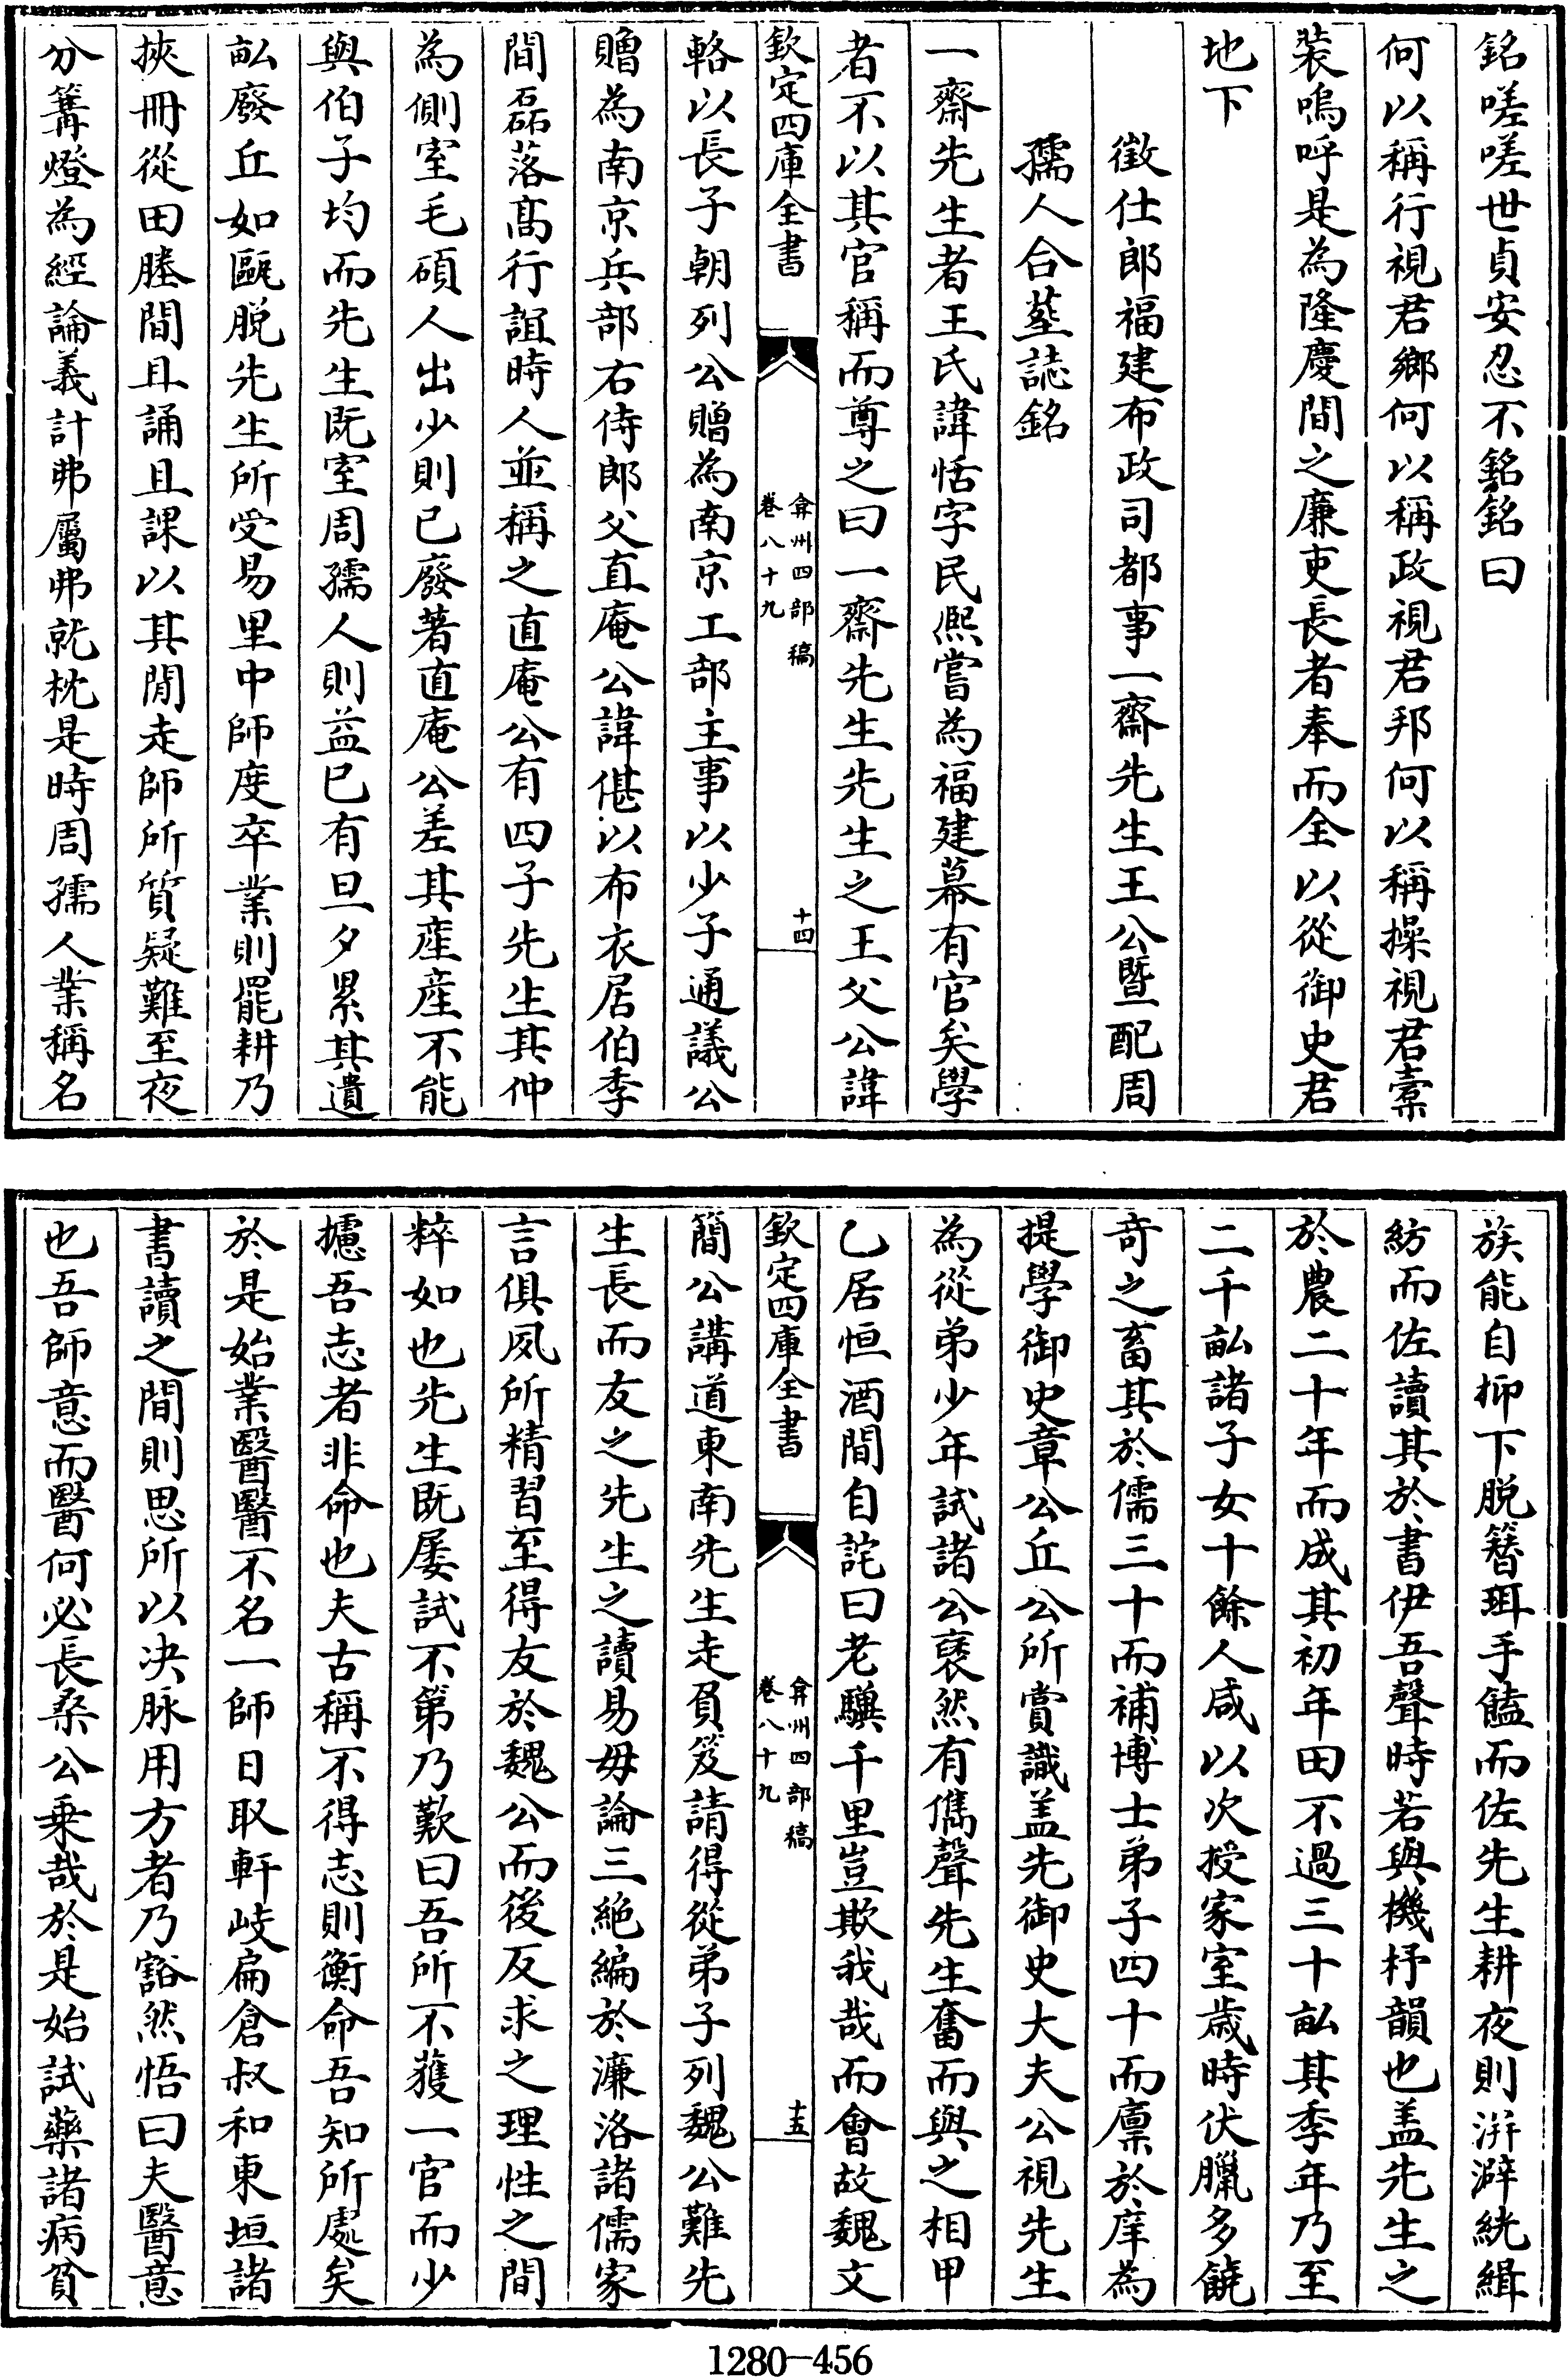 銘嗟嗟世貞安忍不銘銘曰
何以稱行視君鄉何以稱政視君邦何以稱操視君橐
裝嗚呼是為隆慶間之廉吏長者奉而全以從御史君
地下
徵仕郎福建布政司都事一齋先生王公暨配周
孺人合塟誌銘
一齋先生者王氏諱恬字民熈嘗為福建幕有官矣學
者不以其官稱而尊之曰一齋先生先生之王父公諱
欽定四庫全書
弇州四部稿
卷八十九
十四
輅以長子朝列公贈為南京工部主事以少子通議公
贈為南京兵部右侍郎父直庵公諱偡以布衣居伯季
間磊落髙行誼時人並稱之直庵公有四子先生其仲
為側室毛碩人出少則已廢著直庵公差其産産不能
與伯子均而先生既室周孺人則益已有旦夕累其遺
畝廢丘如甌脱先生所受易里中師度卒業則罷耕乃
挾冊從田塍間且誦且課以其閒走師所質疑難至夜
分篝燈為經論義計弗屬弗就枕是時周孺人業稱名
族能自抑下脱簮珥手饁而佐先生耕夜則洴澼絖緝
紡而佐讀其於書伊吾聲時若與機杼韻也盖先生之
於農二十年而成其初年田不過三十畝其季年乃至
二千畝諸子女十餘人咸以次授家室歲時伏臘多饒
竒之畜其於儒三十而補博士弟子四十而廪於庠為
提學御史章公丘公所賞識盖先御史大夫公視先生
為從弟少年試諸公裒然有儁聲先生奮而與之相甲
乙居恒酒間自詫曰老驥千里豈欺我哉而會故魏文
欽定四庫全書
弇州四部稿
卷八十九
十五
簡公講道東南先生走負笈請得從弟子列魏公難先
生長而友之先生之讀易毋論三絶編於濓洛諸儒家
言俱夙所精習至得友於魏公而後反求之理性之間
粹如也先生既屢試不第乃歎曰吾所不獲一官而少
攄吾志者非命也夫古稱不得志則衡命吾知所處矣
於是始業醫醫不名一師日取軒岐扁倉叔和東垣諸
書讀之間則思所以决脉用方者乃豁然悟曰夫醫意
也吾師意而醫何必長桑公乗哉於是始試藥諸病貧
1280—456